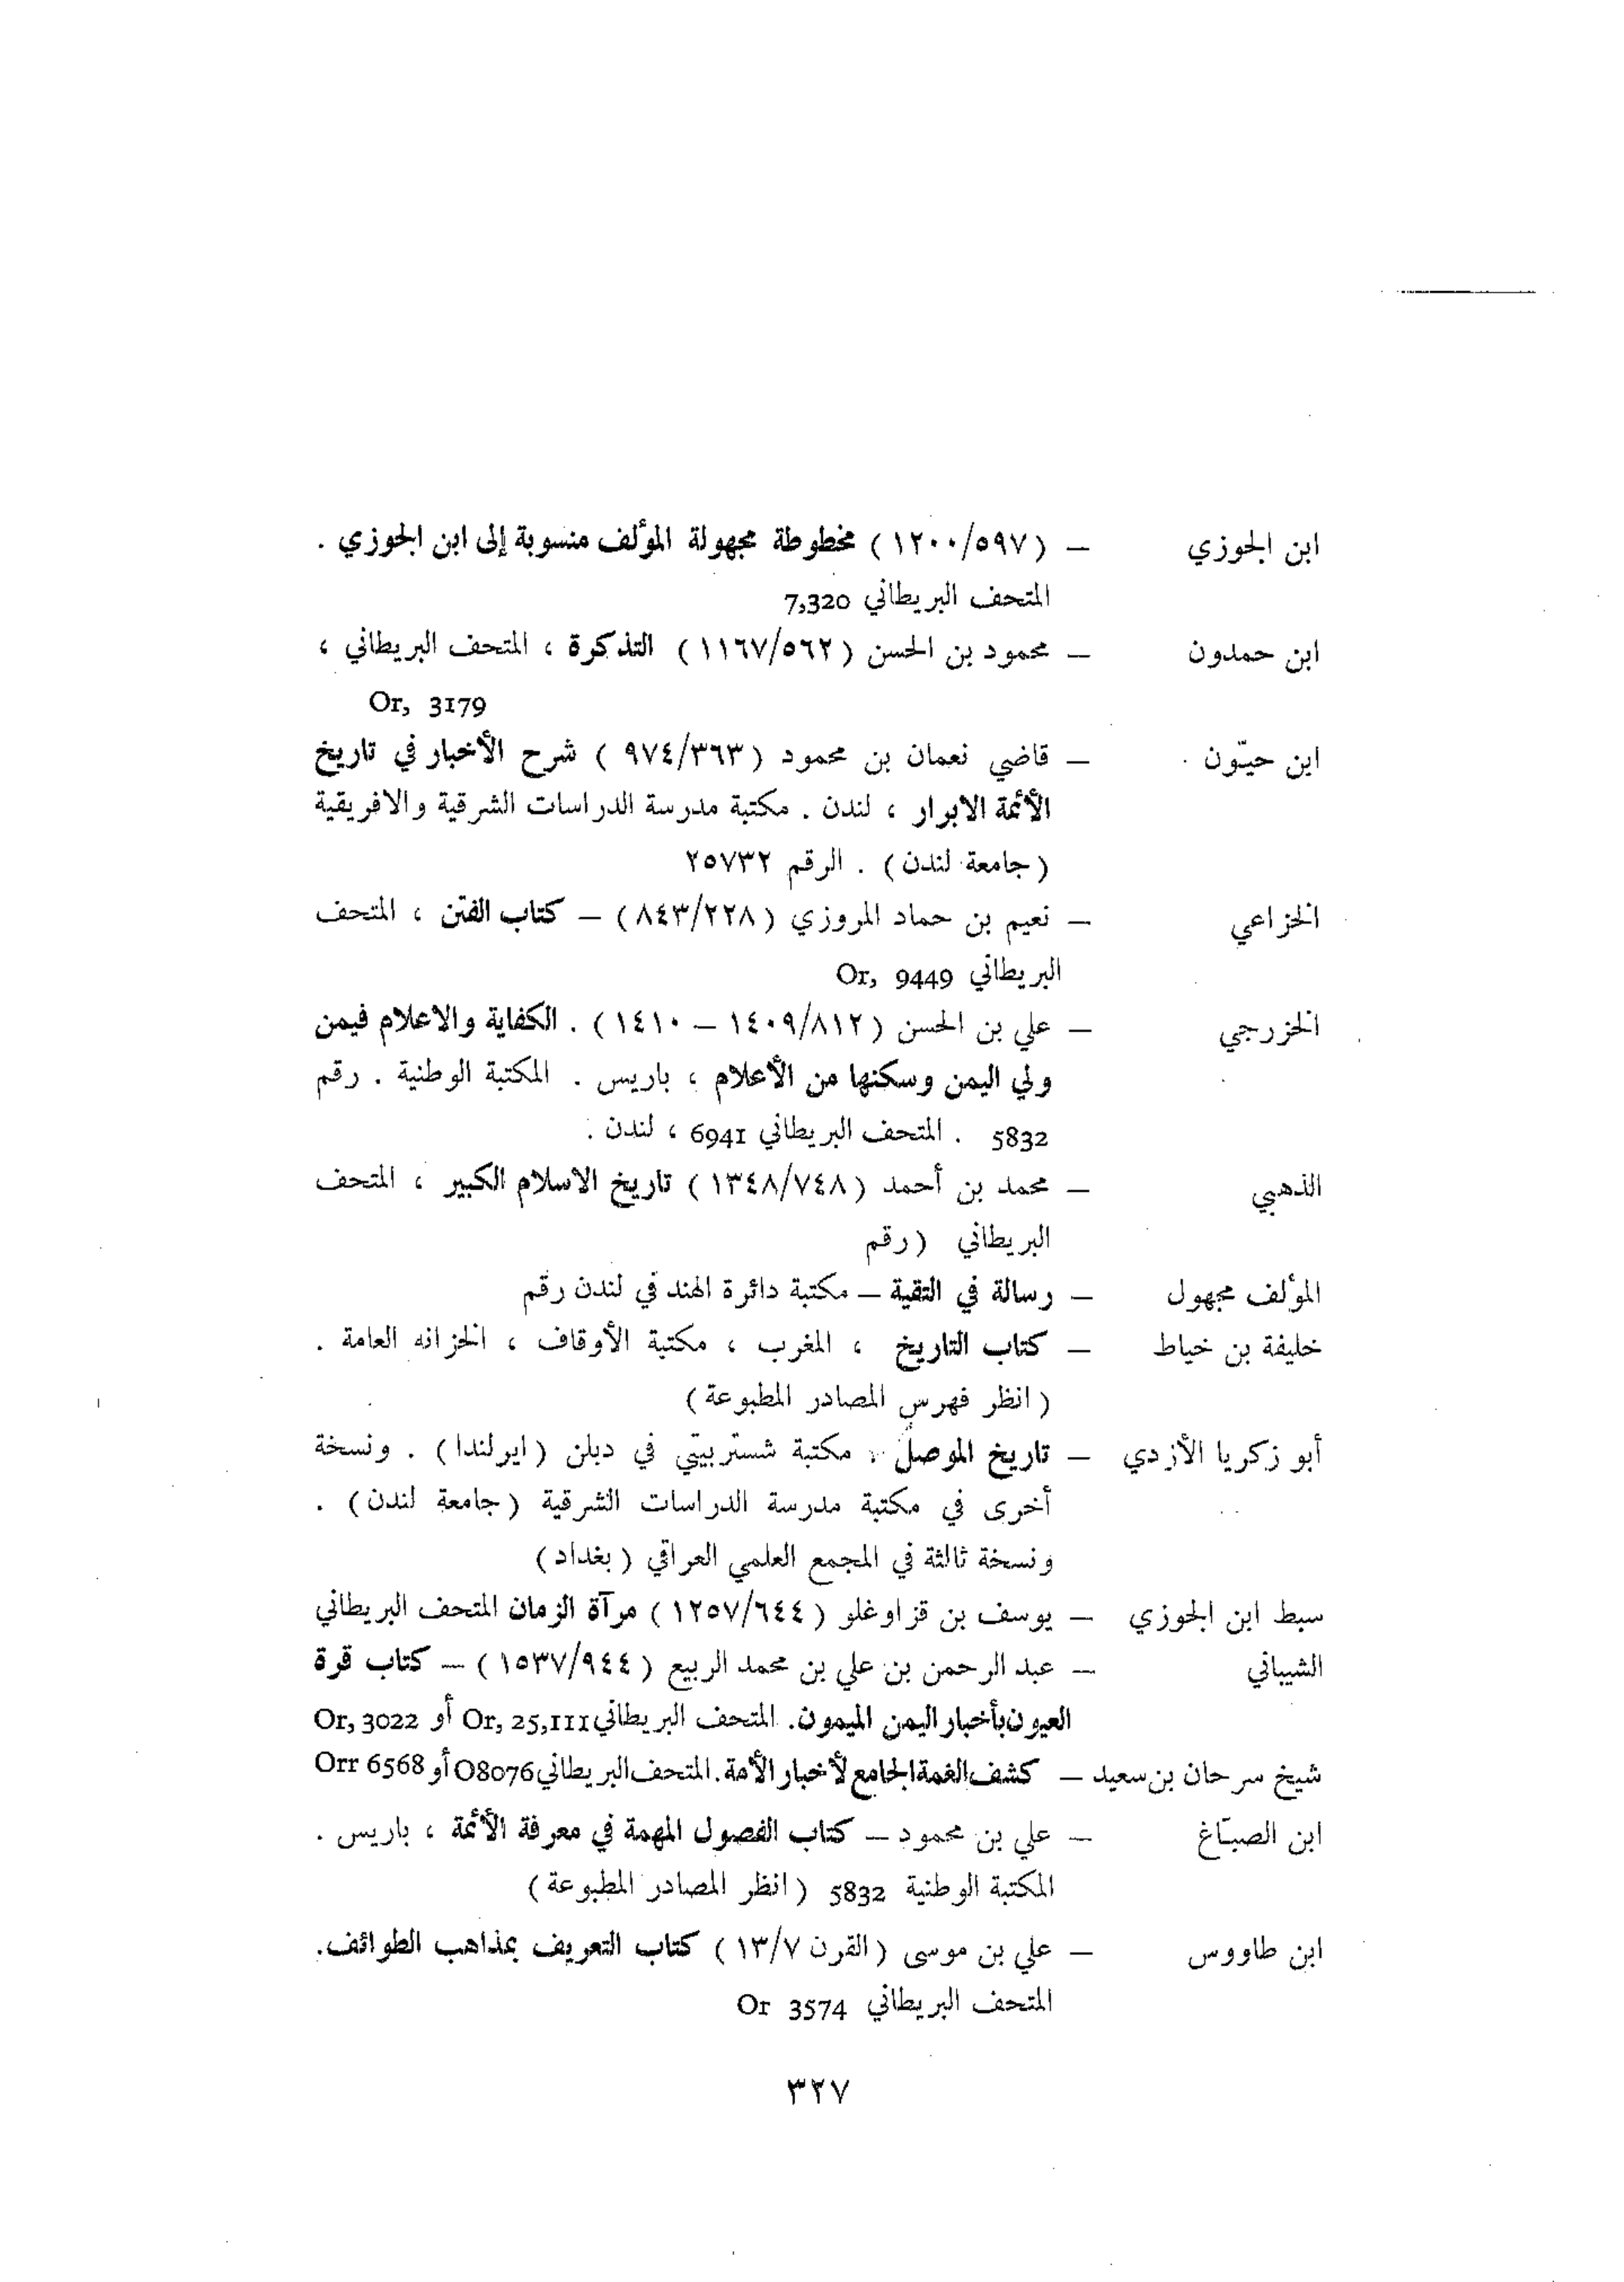 ابن الجوزي — (١٢٠٠/٥٩٧) مخطوطة مجهولة المؤلف منسوبة إلى ابن الجوزي .
المتحف البريطاني 7,320
ابن حمدون — محمود بن الحسن (١١٦٧/٥٦٢) التذكرة ، المتحف البريطاني ،
Or, 3179
ابن حيّون — قاضي نعمان بن محمود (٩٧٤/٣٦٣) شرح الأخبار في تاريخ
الأئمة الابرار ، لندن . مكتبة مدرسة الدراسات الشرقية والافريقية
(جامعة لندن) . الرقم ٢٥٧٣٢
الخزاعي — نعيم بن حماد المروزي (٨٤٣/٢٢٨) — كتاب الفتن ، المتحف
البريطاني Or, 9449
الخزرجي — علي بن الحسن (١٤٠٩/٨١٢ – ١٤١٠) . الكفاية والاعلام فيمن
ولي اليمن وسكنها من الأعلام ، باريس . المكتبة الوطنية . رقم
5832 . المتحف البريطاني 6941 ، لندن .
الذهبي — محمد بن أحمد (١٣٤٨/٧٤٨) تاريخ الاسلام الكبير ، المتحف
البريطاني (رقم
المؤلف مجهول — رسالة في التقية — مكتبة دائرة الهند في لندن رقم
خليفة بن خياط — كتاب التاريخ ، المغرب ، مكتبة الأوقاف ، الخزانه العامة .
(انظر فهرس المصادر المطبوعة)
أبو زكريا الأزدي — تاريخ الموصل ، مكتبة شستربيتي في دبلن (ايرلندا) . ونسخة
أخرى في مكتبة مدرسة الدراسات الشرقية (جامعة لندن) .
ونسخة ثالثة في المجمع العلمي العراقي (بغداد)
سبط ابن الجوزي — يوسف بن قزاوغلو (١٢٥٧/٦٤٤) مرآة الزمان المتحف البريطاني
الشيباني — عبد الرحمن بن علي بن محمد الربيع (١٥٣٧/٩٤٤) — كتاب قرة
العيون بأخبار اليمن الميمون. المتحف البريطاني Or, 25,111 أو Or, 3022
شيخ سرحان بن سعيد — كشف الغمة الجامع لأخبار الأمة. المتحف البريطاني O8076 أو Orr 6568
ابن الصبّاغ — علي بن محمود — كتاب الفصول المهمة في معرفة الأئمة ، باريس .
المكتبة الوطنية 5832 (انظر المصادر المطبوعة)
ابن طاووس — علي بن موسى (القرن ١٣/٧) كتاب التعريف بمذاهب الطوائف.
المتحف البريطاني Or 3574
٣٢٧